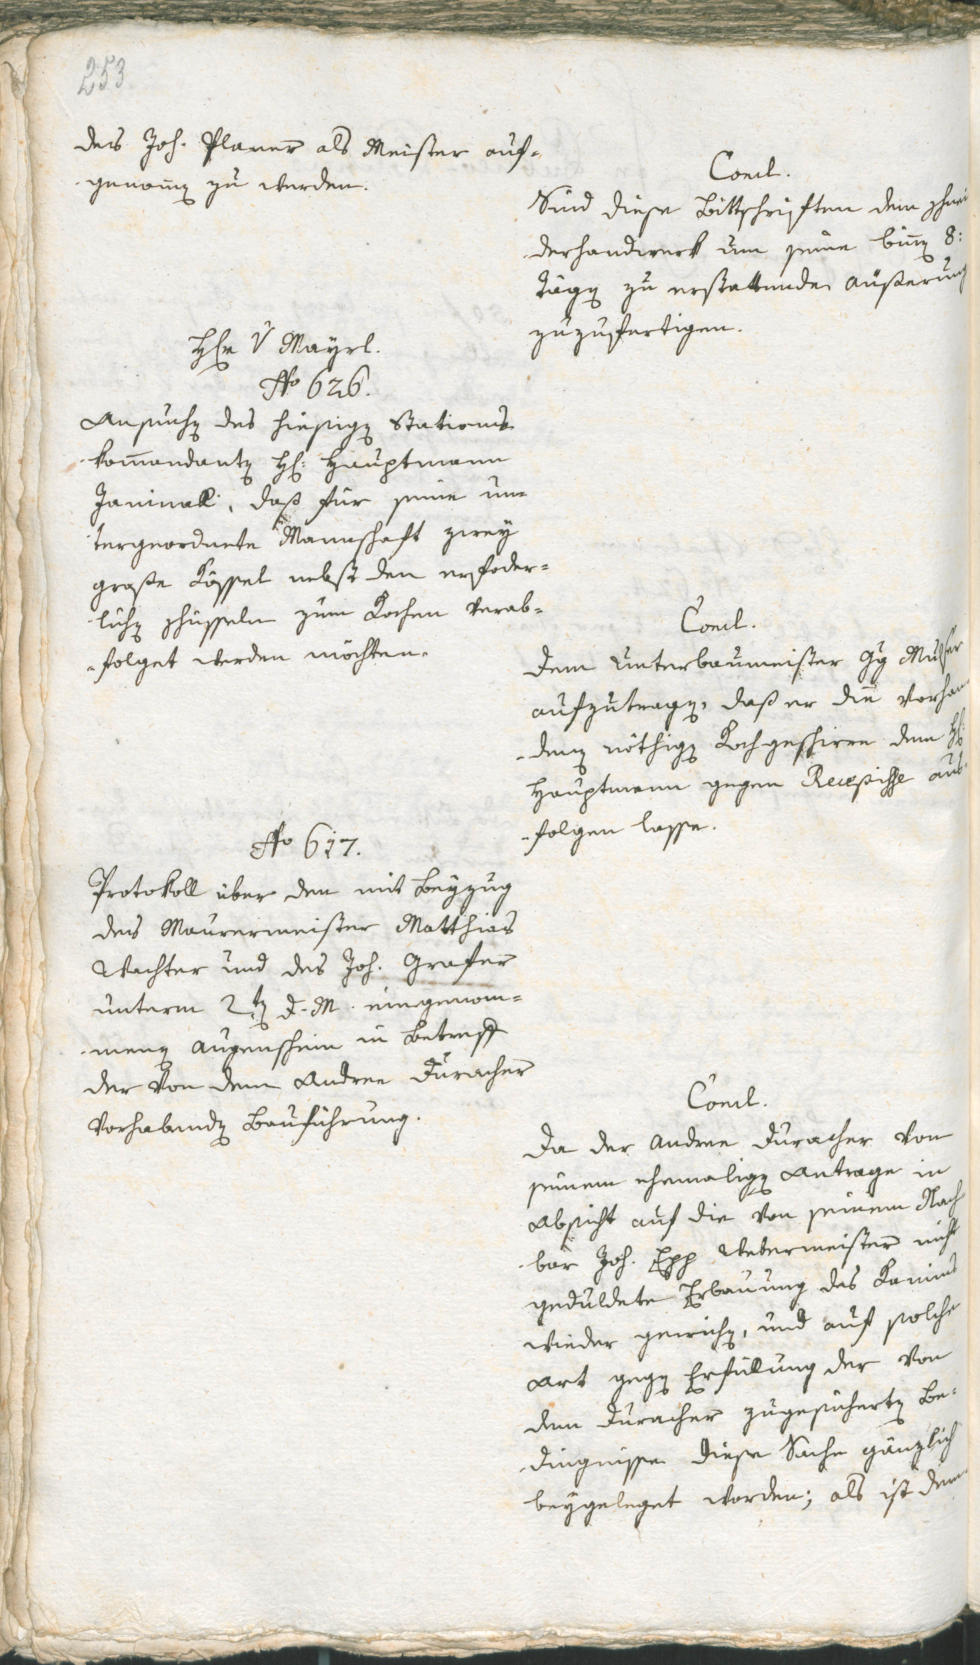 253
des Joh. Planer als Meister auf-
genom̄en zu werden.
Concl.
Sind diese Bittschriften dem Schnei
derhandwerk um seine binnen 8:
Tägen zu erstattende Äußerung
zuzufertigen.
H̄r v Mayrl.
No 626.
Ansuchen des hiesigen Stations
kom̄andanten H: Hauptmann
daß für seine un-
tergeordnete Mannschaft zwey
große Kössel nebst den erfoder-
lichen Schüsseln zum Kochen verab-
folget werden möchten.
Concl.
Dem Unterbaumeister Gg Mulser
aufzutragen, daß er die vorhan
denen nöthigen Kochgeschirre dem H:
Hauptmann gegen Recepisse aus
folgen lasse.
No 627.
Protokoll über den mit Beyzug
des Maurermeister Matthias
Wachter und des Joh. Grafer
unterm 2ten d. M. eingenom-
menen Augenschein in Betreff
der von dem Andree Duracher
vorhabenden Bauführung.
Concl.
Da der Andree Duracher von
seinem ehemaligen Antrage in
Absicht auf die von seinem Nach
bar Joh. Epp Webermeister nicht
geduldete Erbauung des Kamins
wieder gewichen, und auf solche
Art gegen Erfüllung der von
dem Duracher zugesicherten Be-
dingnisse diese Sache gänzlich
beygeleget worden; als ist dem